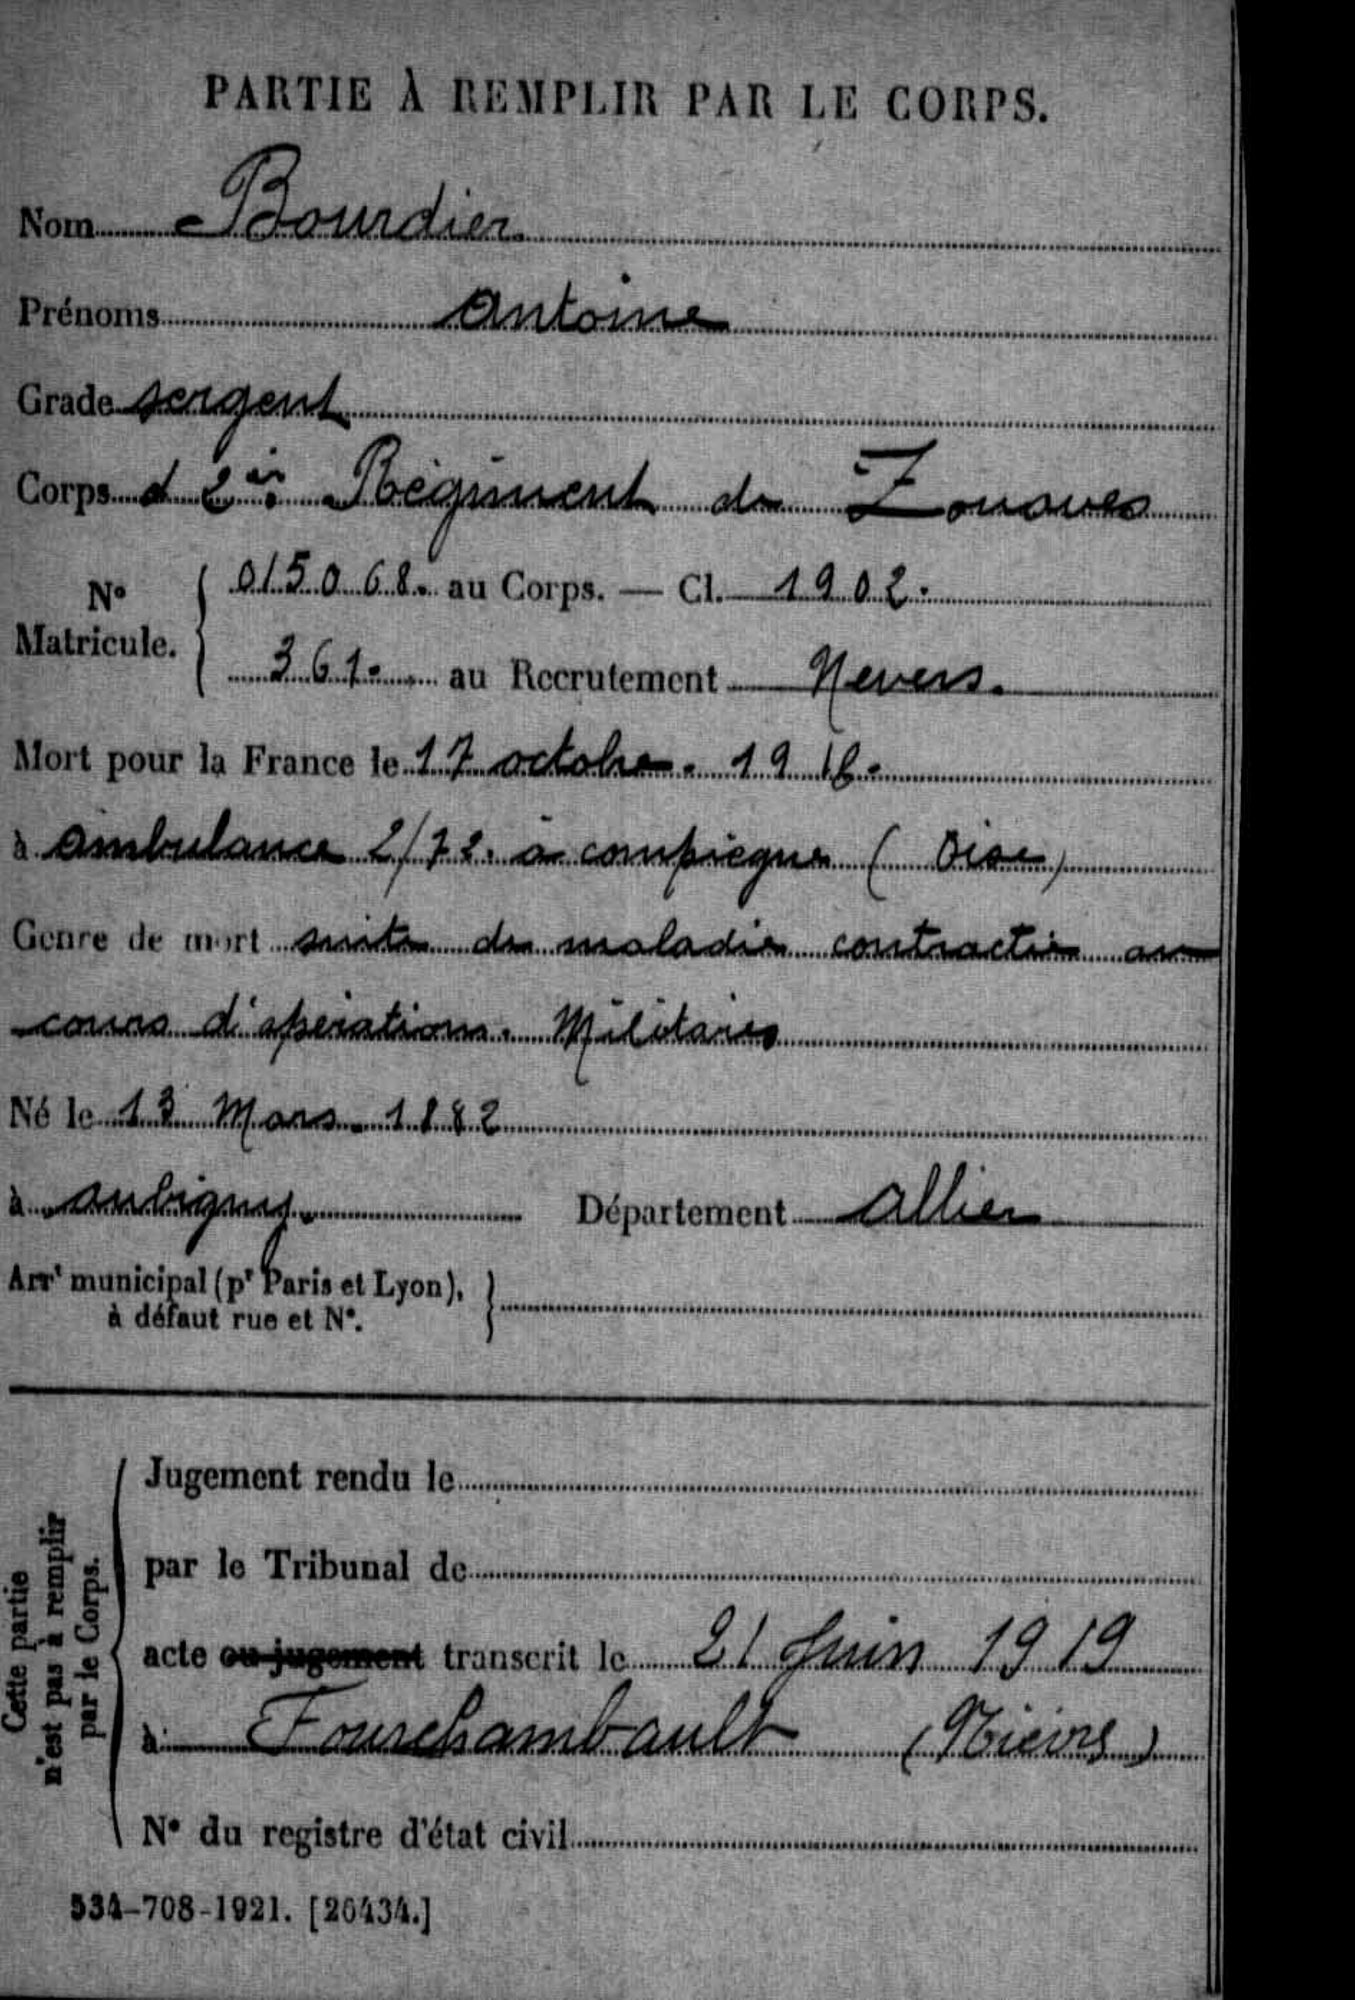 PARTIE À REMPLIR PAR LE CORPS.
Nom Bourdier
Prénoms Antoine
Grade sergent
Corps Régiment de Zouaves
N° Matricule. 015068. au Corps. — Cl. 1902.
361. au Recrutement Nevers.
Mort pour la France le 17 octobre. 19
à ambulance 2/72. à compiègne (Oise)
Genre de mort suite de maladie contractée au
cours d'opérations. Militaires
Né le 13 Mars. 1882
à aubigny. Département Allier
Arrt municipal (pr Paris et Lyon),
à défaut rue et N°.
Cette partie
n'est pas à remplir
par le Corps.
Jugement rendu le
par le Tribunal de
acte ou jugement transcrit le 21 Juin 1919
à Fourchambault (Nièvre)
N° du registre d'état civil
534-708-1921. [26434.]